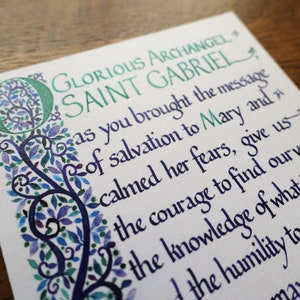 O Glorious Archangel
SAINT GABRIEL
as you brought the message
of salvation to Mary and
calmed her fears, give us
the courage to find our
the knowledge of what
the humility to